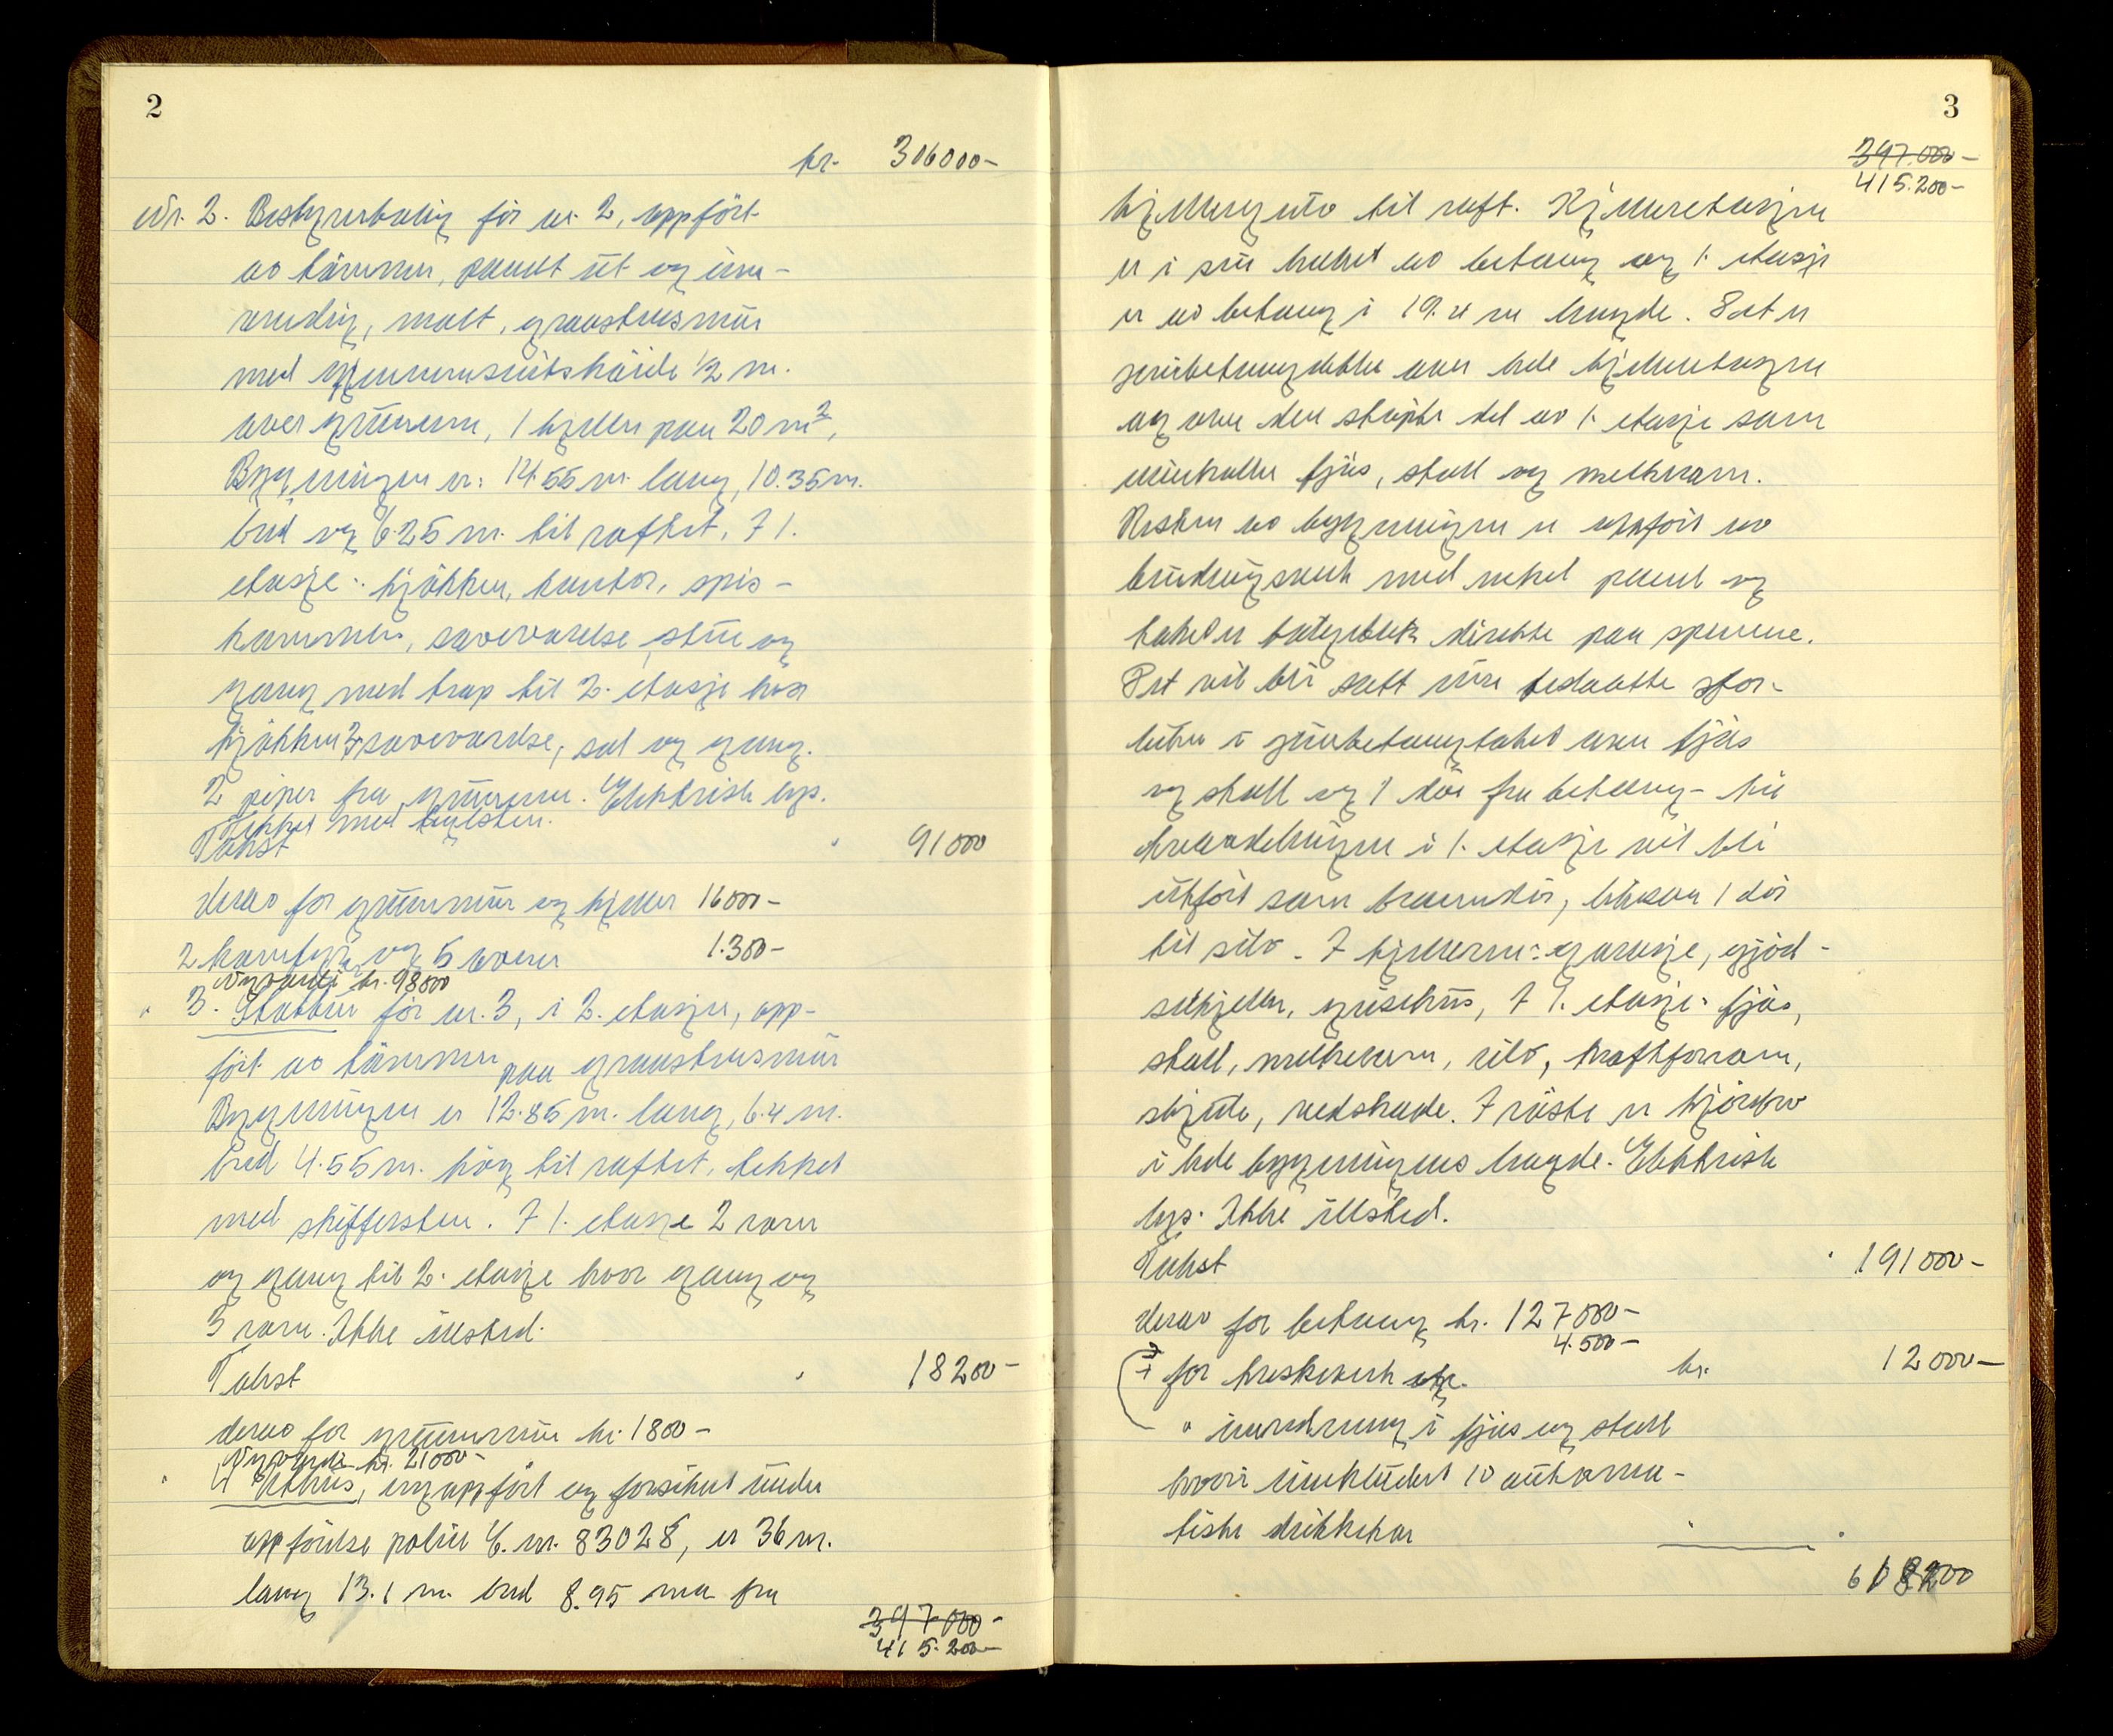 2
kr. 306000-
Nr. 2. Bestyrerbolig før nr. 2, oppført
av tømmer, panelt ut og inn-
vendig, malt, graastensmur
med gjennemsnitshøide ½ m.
over grunnen, 1 kjeller paa 20 m²,
Bygningen er: 14.55 m. lang, 10.35 m.
bred og 6.25 m. til raftet. I 1.
etasje: kjøkken, kontor, spis-
kammer, soveværelse, stue og
gang med trap til 2. etasje hvor
kjøkken 3 soveværelse, sal og gang.
2 piper fra grunnen. Elektrisk lys.
Tekket med teglsten.
Takst " 91000
derav for grunnmur og kjeller 16000-
2 komfyr og 5 ovner 1.300-
Nyverdi kr. 98000
" 3. Stabbur før nr. 3, i 2. etasjer, opp-
ført av tømmer paa graastensmur
Bygningen er 12.85 m. lang, 6.4 m.
bred 4.55 m. høg til raftet, tekket
med skiffersten. I 1. etasje 2 rom
og gang til 2. etasje hvor gang og
3 rom. Ikke ildsted.
Takst " 18200-
derav for grunnmur kr. 1800-
Nyverdi kr. 21000-
" 4 Uthus, nyoppført og forsikret under
oppførelse police C. nr. 83028, er 36 m.
lang 13.1 m. bred 8.95 m. fra
397000-
415.200-
3
397.000-
415.200-
kjellergulv til raft. Kjelleretasjen
er i sin helhet av betong og 1. etasje
er av betong i 19.4 m lengde. Det er
jernbetongdekke over hele kjelleretasjen
og over den støpte del av 1. etasje som
inneholder fjøs, stall og melkerom.
Resten av bygningen er oppført av
bindingsverk med utvendig panel og
taket er bølgeblikk direkte paa sperrene.
Det vil bli satt inn tedaatte spor-
luker i jernbetongtaket over fjøs
og stall og 1 dør fra betong- til
treavdelingen i 1. etasje vil bli
utført som branndør, likesaa 1 dør
til silo. I kjelleren: garasje, gjød-
selkjeller, grisehus, I 1. etasje: fjøs,
stall, melkerom, silo, kraftforrom,
skjule, redskade. I røste er kjørebro
i hele bygningens lengde. Elektrisk
lys. Ikke ildsted.
Takst " 191000-
derav for betong kr. 127000-
4.500-
+ for treskeverk etc. kr. 12000-
" innredning i fjøs og stall
hvori innkludert 10 automa-
tiske drikkekar " "
618200